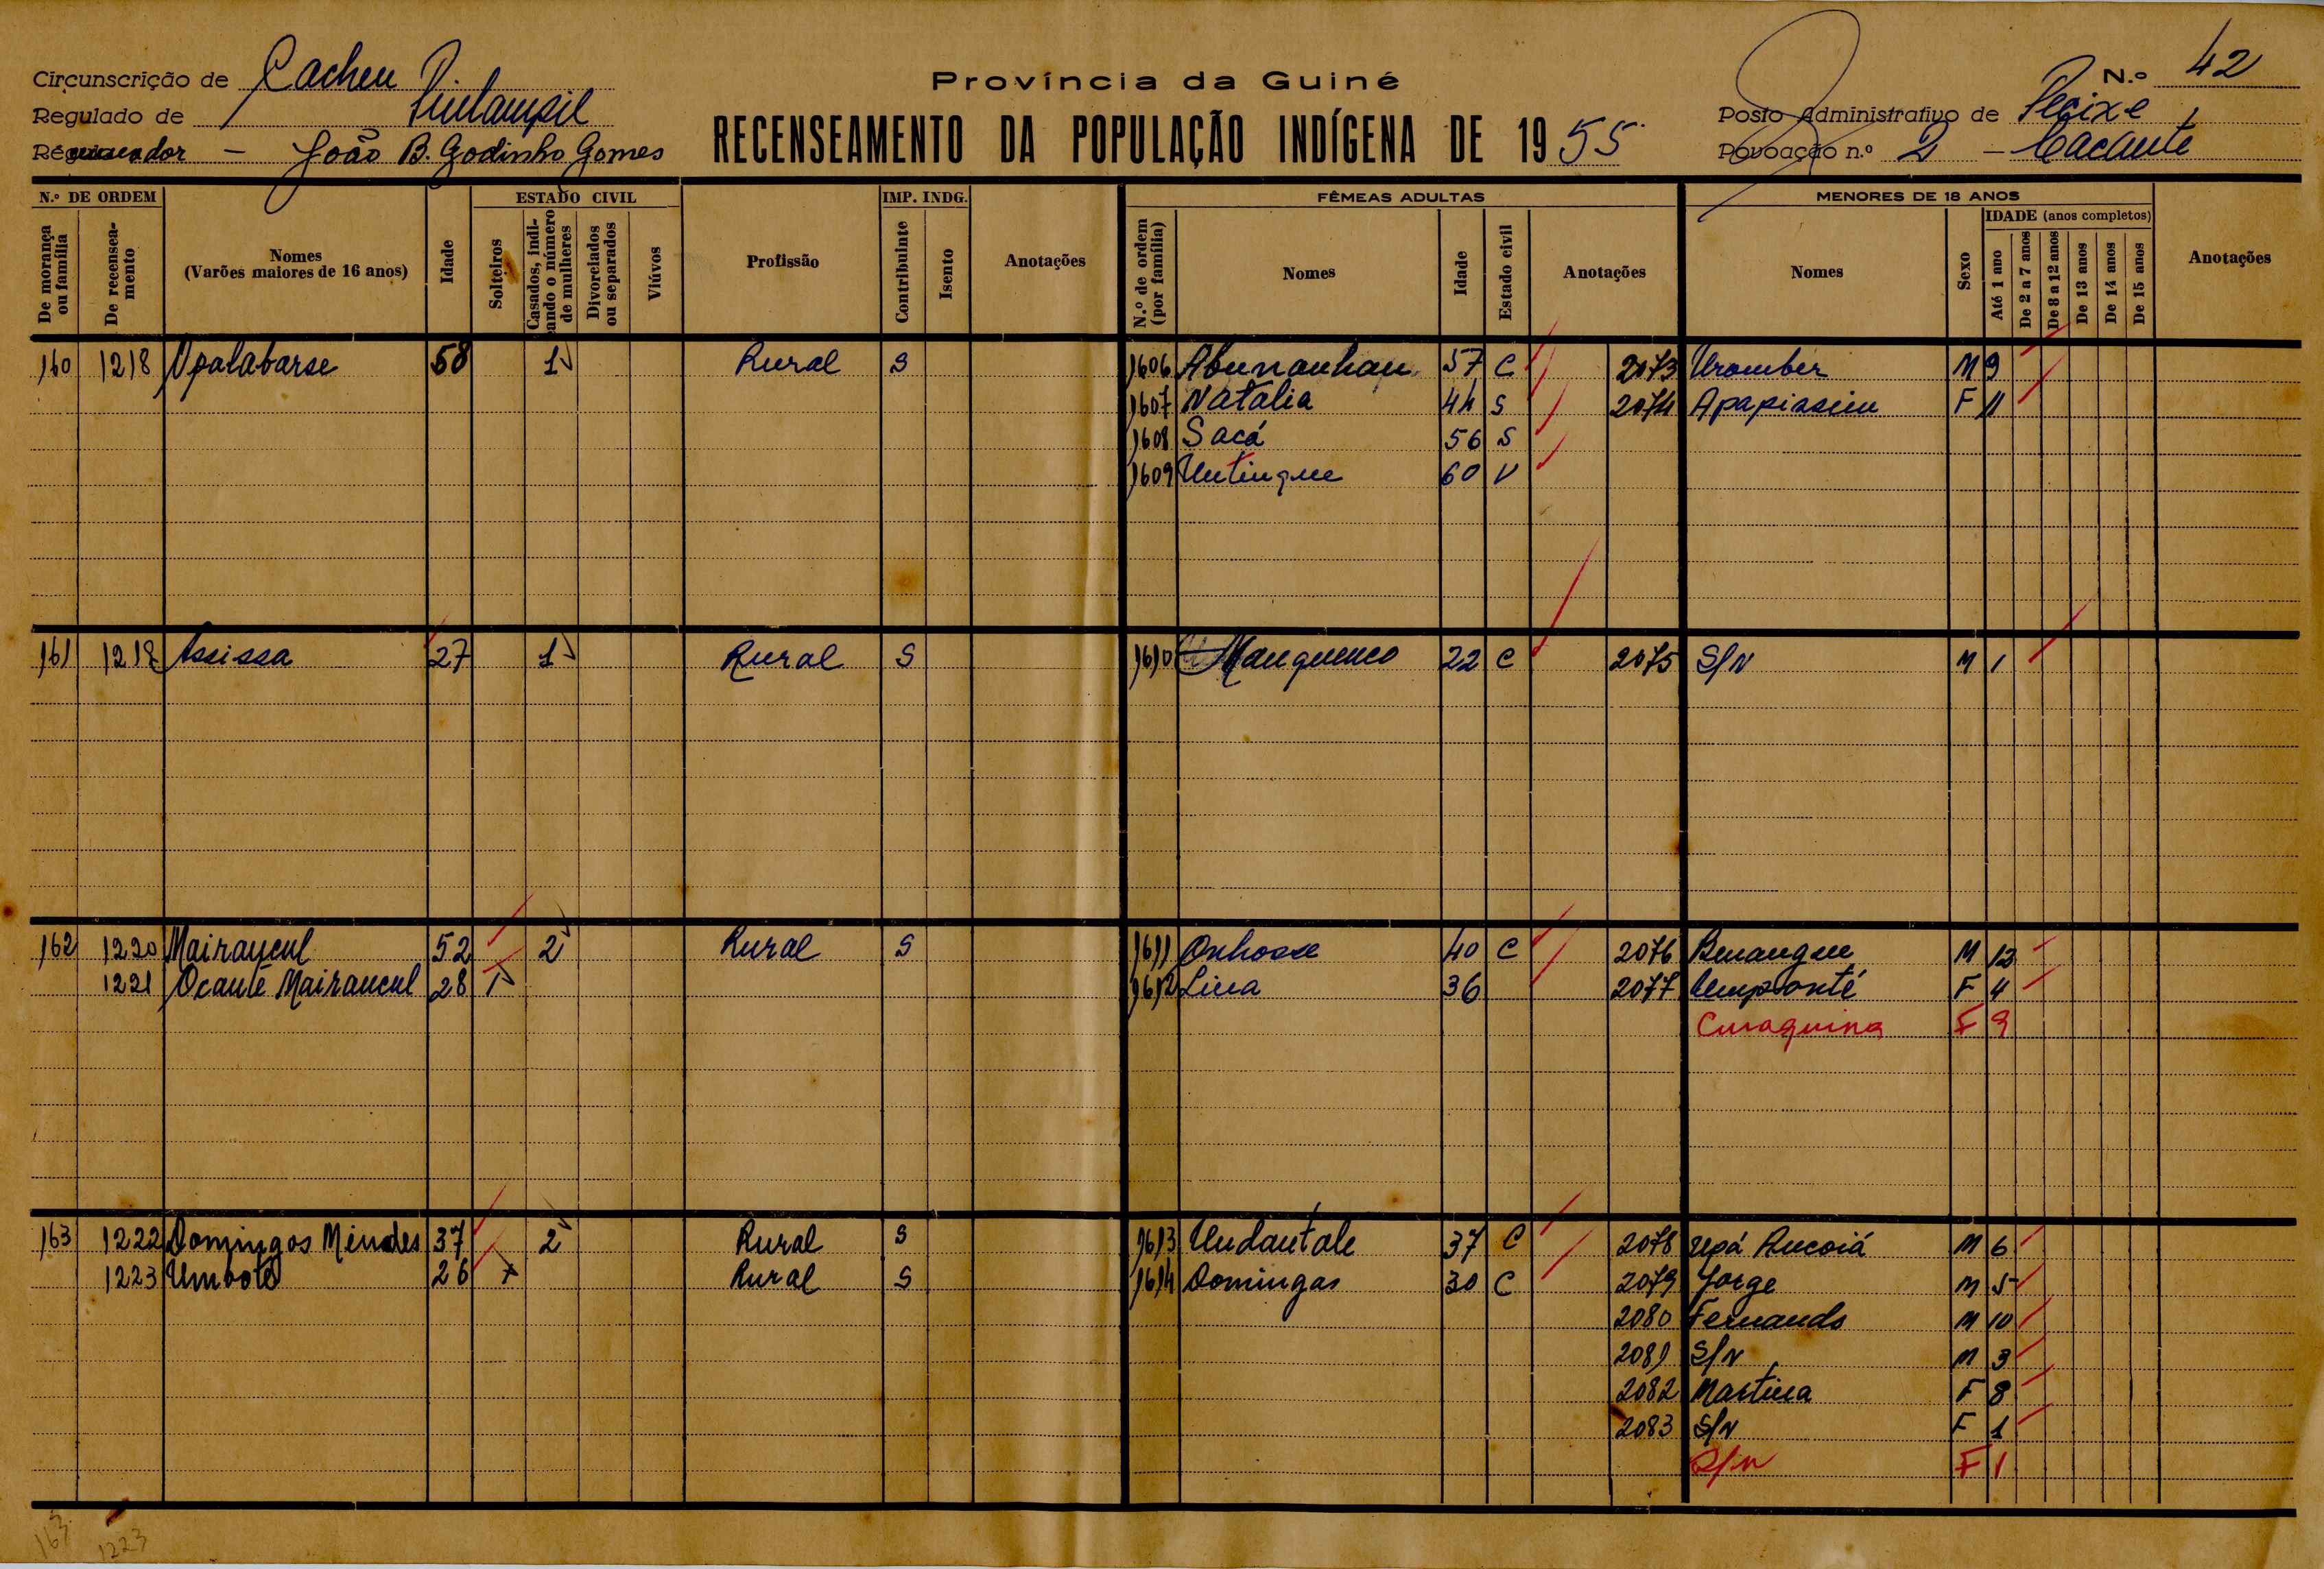 Circunscrição de Cacheu
Província da Guiné
N.º 42
Regulado de
Posto Administrativo de Pecixe
RECENSEAMENTO DA POPULAÇÃO INDÍGENA DE 1955
João B. Godinho Gomes
Povoação n.º 2 - Cacante
N.º DE ORDEM
ESTADO CIVIL
IMP. INDG.
FÊMEAS ADULTAS
MENORES DE 18 ANOS
IDADE (anos completos)
De morança ou família
De recenseamento
Nomes (Varões maiores de 16 anos)
Idade
Solteiros
Casados, indicando o número de mulheres
Divorciados ou separados
Viúvos
Profissão
Contribuinte
Isento
Anotações
N.º de ordem (por família)
Nomes
Idade
Estado civil
Anotações
Nomes
Sexo
Até 1 ano
De 2 a 7 anos
De 8 a 12 anos
De 13 anos
De 14 anos
De 15 anos
Anotações
160 1218 Opalabarse 58 1 Rural S 1606 Abunanhau 57 C 2073 Uromber M 9
1607 Natalia 44 S 2074 Apapiassim F 11
1608 Sacá 56 S
1609 Untinque 60 V
161 1218 Assissa 27 1 Rural S 1610 Manguenco 22 C 2075 S/N M 1
162 1220 Mairancul 52 2 Rural S 1611 Onhosse 40 C 2076 Benangue M 12
1221 Ocante Mairancul 28 1 1612 Lina 36 2077 F 4
Curaquina F 9
163 1222 Domingos Mendes 37 2 Rural S 1613 Undantale 37 C 2078 Upá Rucoiá M 6
1223 Umboté 26 x Rural S 1614 Domingas 30 C 2079 Jorge M 5
2080 Fernando M 10
2081 S/N M 3
2082 Martina F 8
2083 S/N F 1
S/n F 1
163
1223